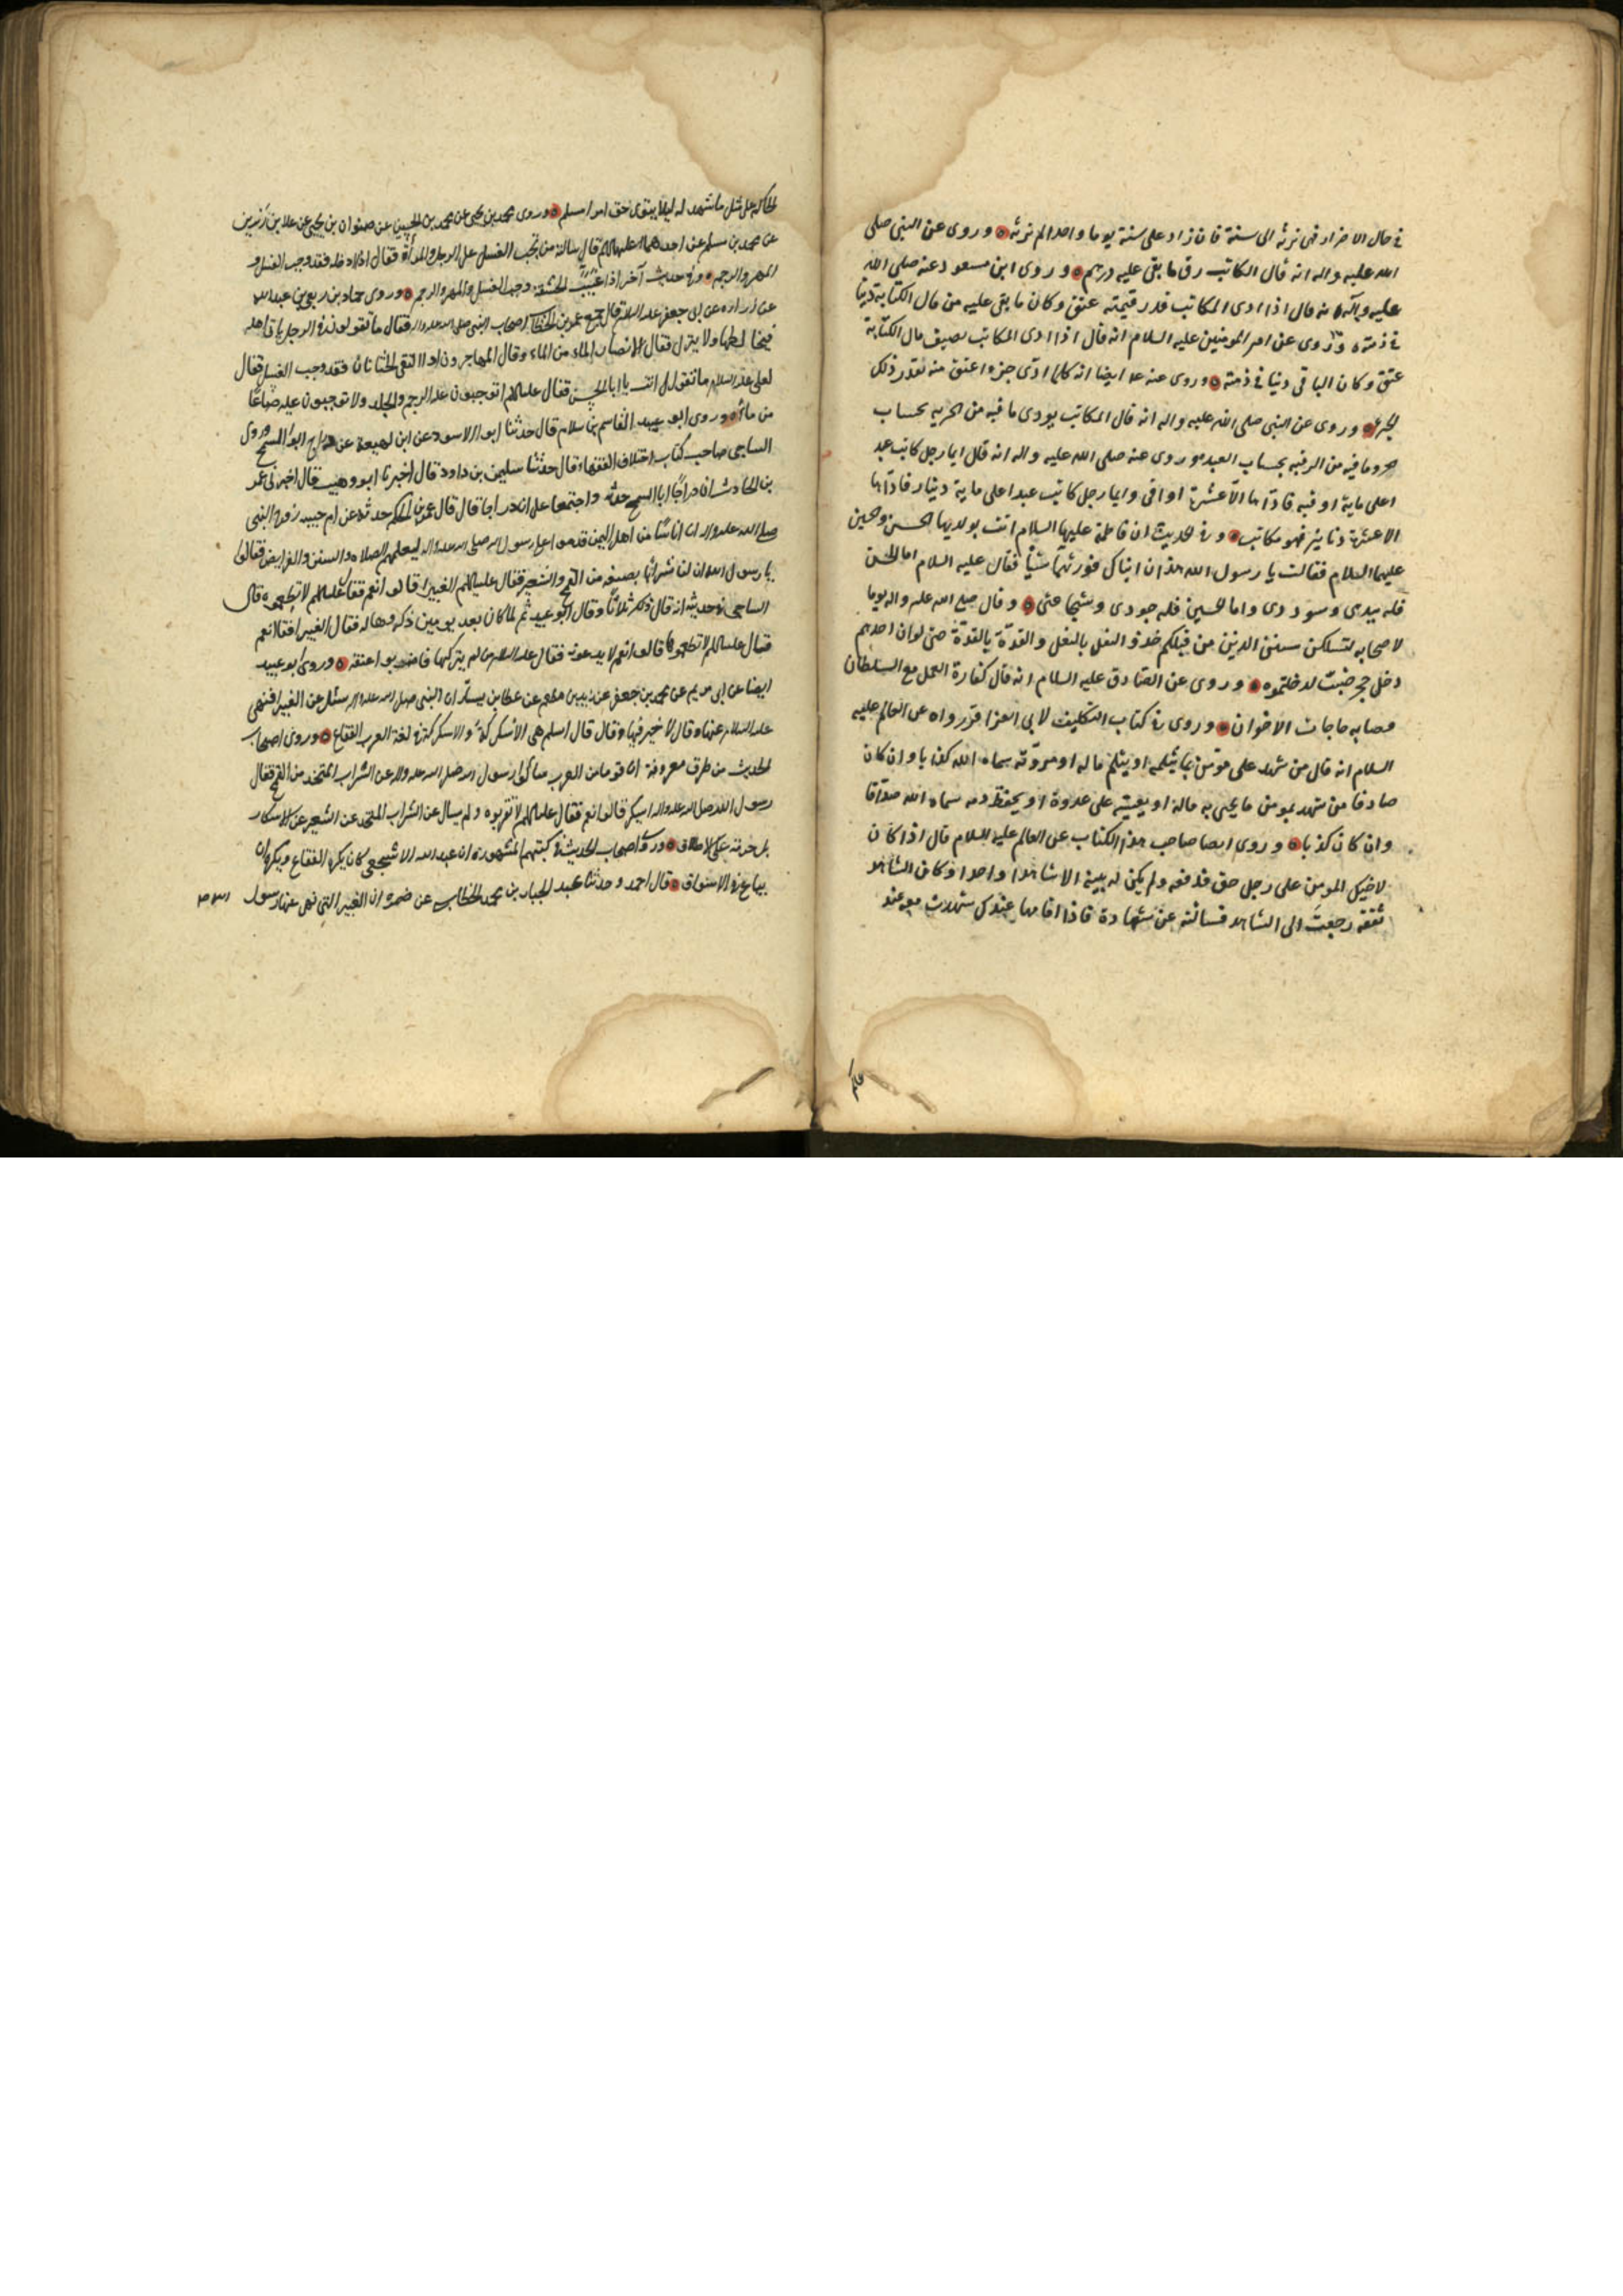 في حال الاضرار فهي ترثه الى سنة فان زاد على سنة يوما واحدا لم ترثه ه وروى عن النبي صلى
الله عليه واله انه قال المكاتب رق ما بقي عليه درهم ه وروى ابن مسعود عنه صلى الله
عليه وآله انه قال اذا ادى المكاتب قدر قيمته عتق وكان ما بقي عليه من مال الكتابة دينا
في ذمته ه وروى عن امير المومنين عليه السلام انه قال اذا ادى المكاتب نصف مال الكتابة
عتق وكان الباقي دينا في ذمته ه وروى عنه ع ايضا انه كلما ادّى جزءا عتق منه بقدر ذلك
الجزء ه وروى عن النبي صلى الله عليه واله انه قال المكاتب يودى ما فيه من الحرية بحساب
حر وما فيه من الرقبه بحساب العبد وروى عنه صلى الله عليه واله انه قال ايما رجل كاتب عبد
ا على ماية اوقيه فادّاها الّا عشرة اواقى وايما رجل كاتب عبدا على ماية دينار فادّاها
الا عشرة دنانير فهو مكاتب ه وفي الحديث ان فاطمة عليها السلام اتت بولديها الحسن والحسين
عليهما السلام فقالت يا رسول الله هذان ابناك فورثهما شيئًا فقال عليه السلام اما الحسن
فله هيبتى وسوددى واما الحسين فله جودى وشجاعتى ه وقال صلع الله عليه واله يوما
لاصحابه لتسلكن سنن الذين من قبلكم حذو النعل بالنعل والقذّة بالقذّة حتى لو ان احدهم
دخل جحر ضبّ لدخلتموه ه وروى عن الصّادق عليه السلام انه قال كفارة العمل مع السلطان
قضا حاجات الاخوان ه وروى في كتاب التكليف لابن ابي العزاقر رواه عن العالم عليه
السلام انه قال من شهد على مومن بما يثلمه او يثلم ماله او مروّته سماه الله كذابا وان كان
صادقا من شهد لمومن ما يحيى به ماله او يعينه على عدوه او يحفظ دمه سماه الله صادقا
وان كان كذابا ه وروى ايضا صاحب هذا الكتاب عن العالم عليه السلام قال اذا كان
لاخيك المومن على رجل حق فدفعه ولم يكن له بينة الا شاهدا واحدا وكان الشاهد
ثقة رجعت الى الشاهد فسالته عن شهادة فاذا اقامها عندك شهدت معه عند
الحاكم على مثل ما شهد له ليلا يتوى حق امرا مسلم ه وروى محمد بن يحيى عن محمد بن الحسين عن صفوان بن يحيى عن علا بن رزين
عن محمد بن مسلم عن احدهما عليهما السلم قال سالته متى يجب الغسل على الرجل والمرأة فقال اذا ادخله فقد وجب الغسل و
المهر والرجم ه وفي حديث آخر اذا غيّبت الحشفة وجب الغسل والمهر والرجم ه وروى حماد بن ربعي بن عبد الله
عن زرارة عن ابى جعفر عليه السلام قال جمع عمر بن الخطاب اصحاب النبي صلى الله عليه واله فقال ما تقولون في الرجل ياتى اهله
فيخالطها ولا ينزل فقال الانصار الماء من الماء وقال المهاجرون اذا التقى الختانان فقد وجب الغسل فقال
لعلى عليه السلام ما تقول انت يا ابا الحسن فقال عليه السلم اتوجبون عليه الرجم والجلد ولا توجبون عليه صاعًا
من ماء ه وروى ابو عبيد القاسم بن سلام قال حدثنا ابو الاسود عن ابن لهيعة عن دراج ابى السمح وروى
الساجى صاحب كتاب اختلاف الفقهاء قال حدثنا سليمن بن داود قال اخبرنا ابو وهب قال اخبرنى عمر
بن الحارث ان دراجًا ابا السمح حدثه واجتمعا على ان دراجا قال قال عمر بن الحكم حدثه عن ام حبيبه زوج النبي
صلى الله عليه واله ان اناسًا من اهل اليمن قدموا على رسول الله صلى الله عليه واله ليعلمهم الصلاه والسنن والفرايض فقالوا
يا رسول الله ان لنا شرابًا نصنعه من القمح والشعير فقال عليه السلم الغبيرا قالوا نعم فقال عليه السلم لا تطعموه قال
الساجى في حديثه انه قال ذلك ثلاثًا وقال ابو عبيد ثم لما كان بعد يومين ذكروها له فقال الغبيرا فقالا نعم
فقال عليه السلم لا تطعموها قالوا فانهم لا يدعونه فقال عليه السلم من لم يتركها فاضربوا عنقه ه وروى ابو عبيد
ايضا عن ابى مريم عن محمد بن جعفر عن زيد بن اسلم عن عطا بن يسار ان النبي صلى الله عليه واله سئل عن الغبيرا فنهى
عليه السلام عنها وقال لا خير فيها وقال قال اسلم هى الاسكركة والاسكركة في لغة العرب الفقاع ه وروى اصحاب
الحديث من طرق معروفة ان قوما من العرب سالوا رسول الله صلى الله عليه واله عن الشراب المتخذ من القمح فقال
رسول الله صلى الله عليه واله ايسكر قالوا نعم فقال عليه السلم لا تقربوه ولم يسال عن الشراب المتخذ عن الشعير عن الاسكار
بل حرمه على الاطلاق ه وروى اصحاب الحديث في كتبهم المشهورة ان عبد الله الاشجعى كان يكره الفقاع ويكره ان
يباع في الاسواق ه قال احمد وحدثنا عبد الجبار بن محمد الخطابى عن ضمرة ان الغبيرا التى نهى عنها رسول